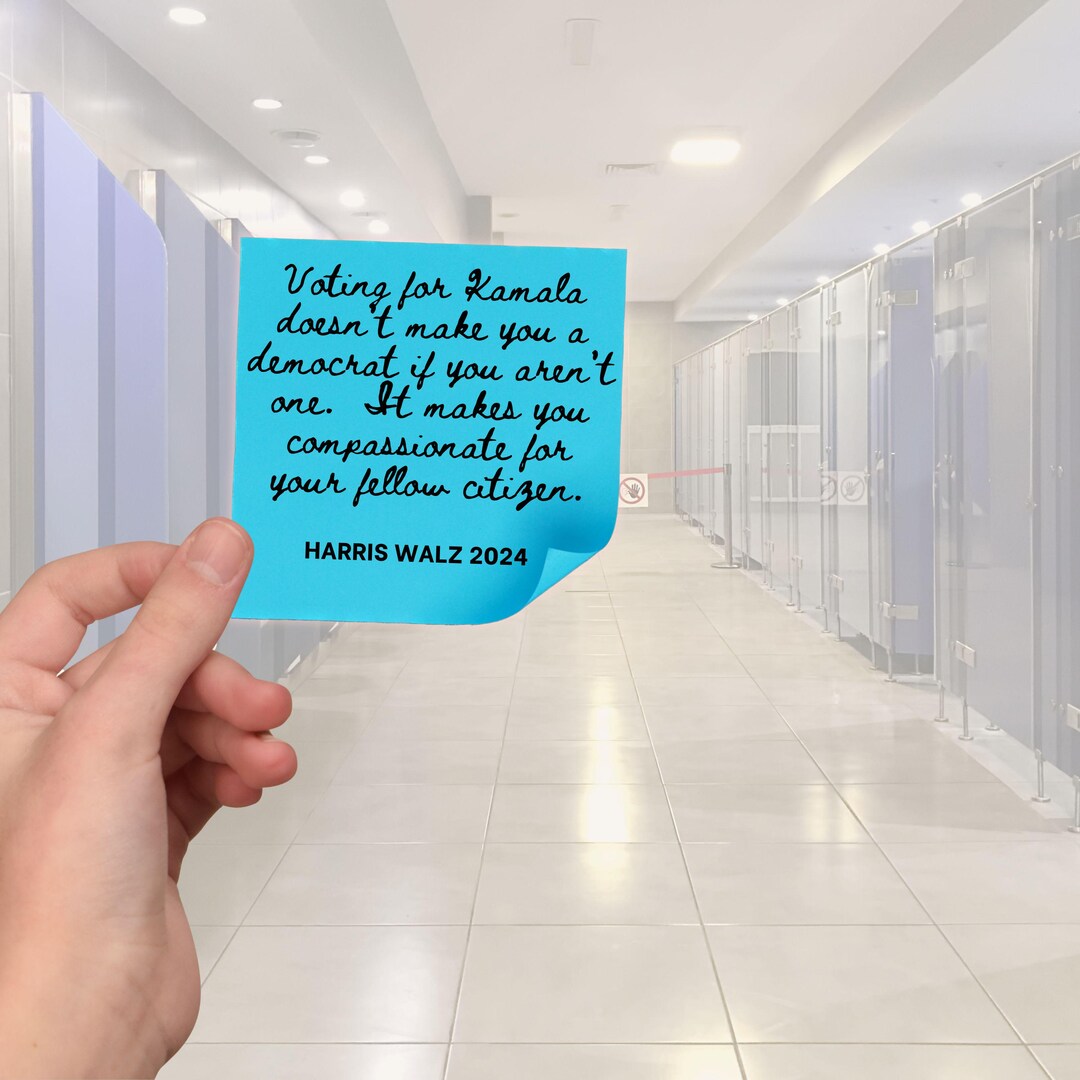 Voting for Kamala
doesn't make you a
democrat if you aren't
one. It makes you
compassionate for
your fellow citizen.
HARRIS WALZ 2024